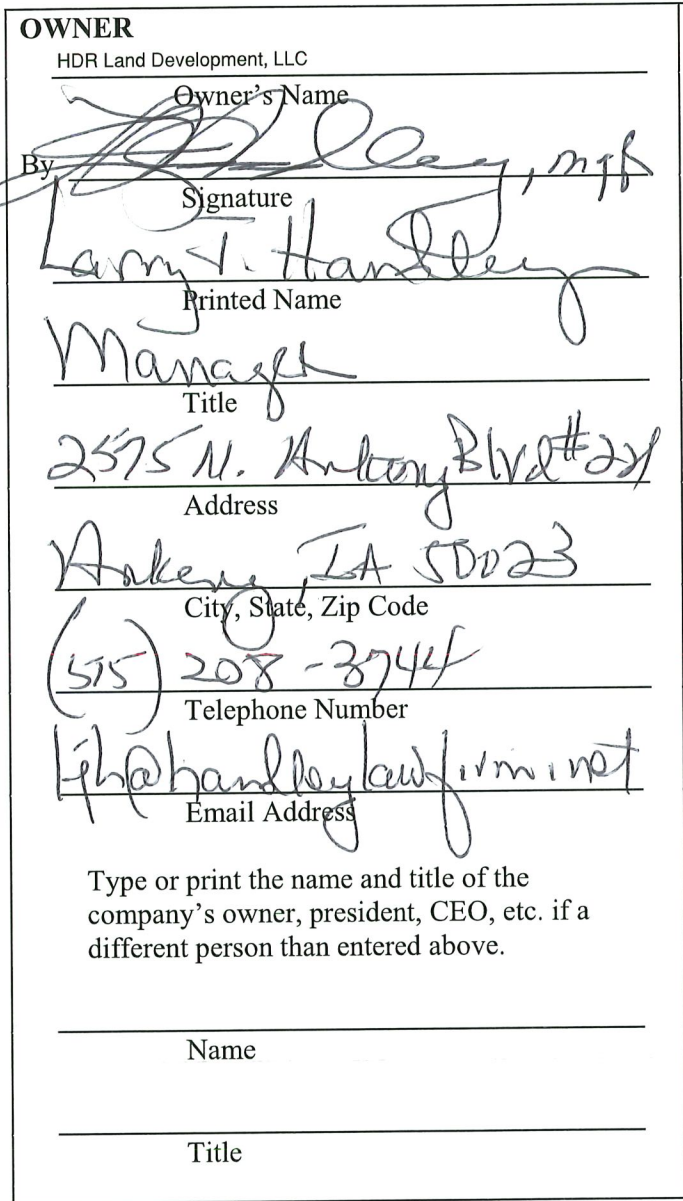 OWNER
HDR Land Development, LLC
Owner's Name
By , mgr
Signature
Larry J. Handley
Printed Name
Manager
Title
2575 N. Ankeny Blvd #221
Address
Ankeny, IA 50023
City, State, Zip Code
(515) 208-3744
Telephone Number
ljh@handleylawfirm.net
Email Address
Type or print the name and title of the
company's owner, president, CEO, etc. if a
different person than entered above.
Name
Title